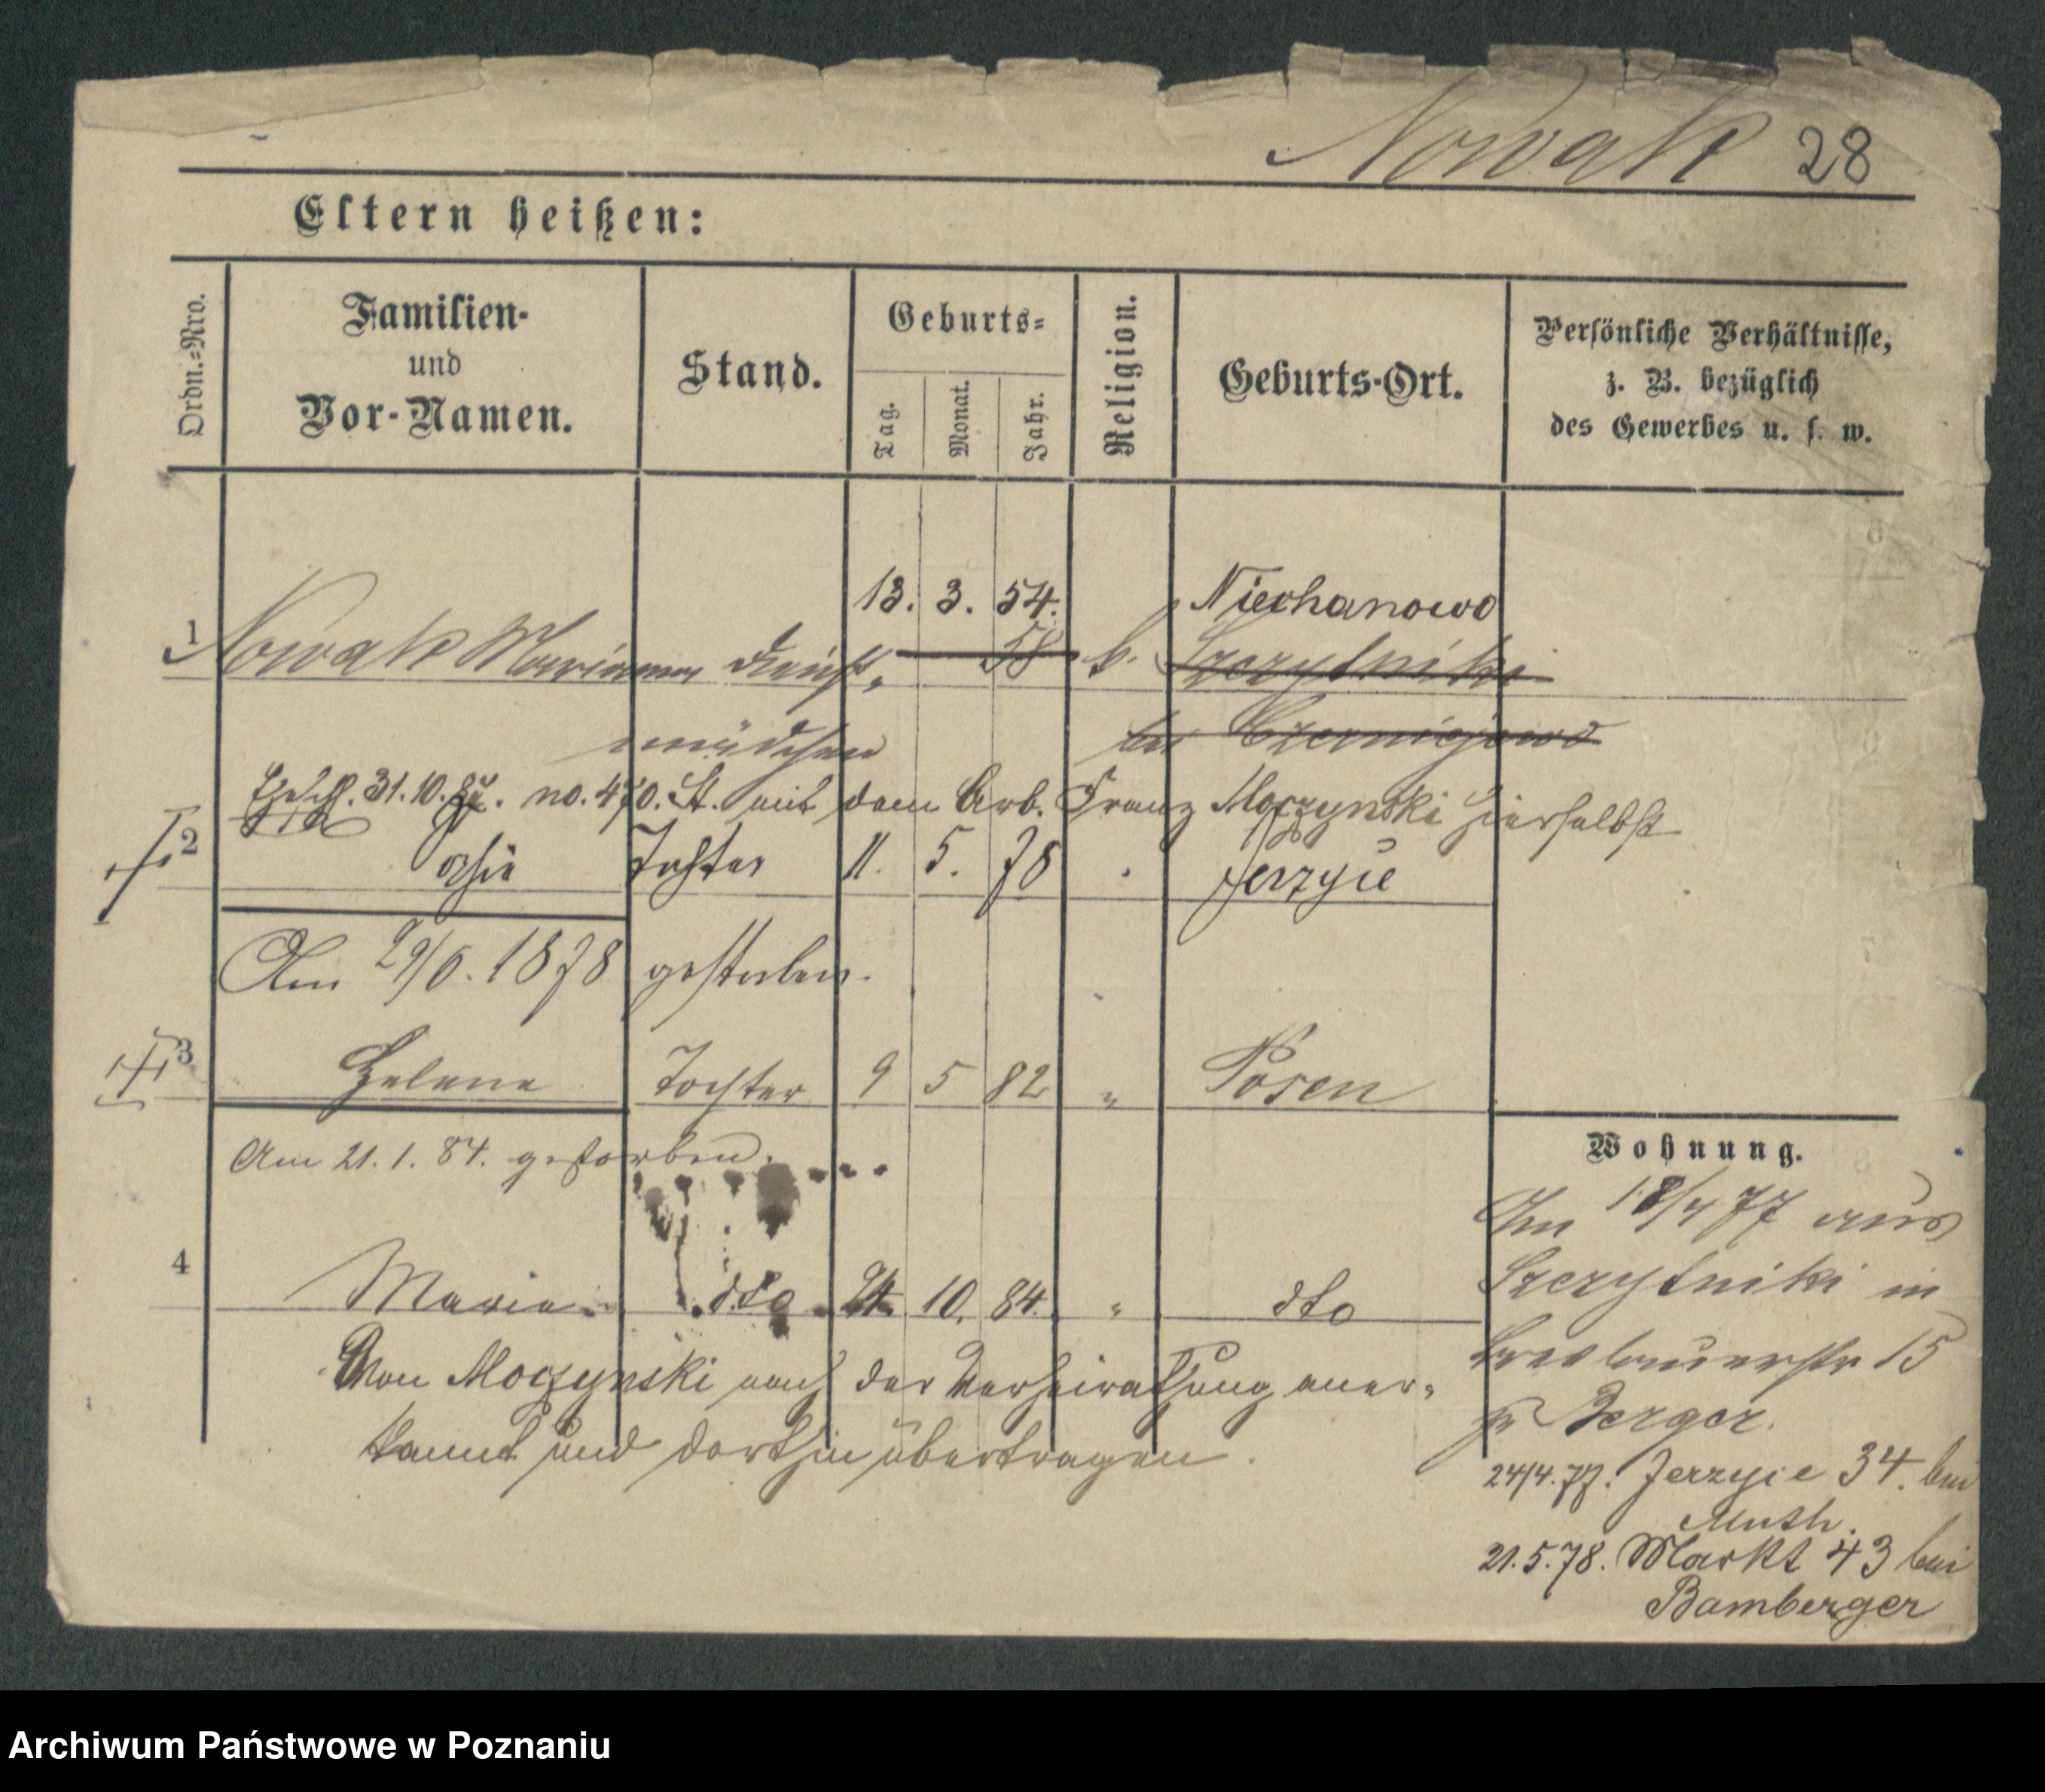 Nowak 28
Eltern heißen:
Ordn.=Nro.
Familien-
und
Vor-Namen.
Stand.
Geburts=
Tag.
Monat.
Jahr.
Religion.
Geburts-Ort.
Persönliche Verhältnisse,
z. B. bezüglich
des Gewerbes u. s. w.
13. 3. 54. Niechanowo
1 Nowak Marianna Dienst- 58 k. Szczytniki
mädchen bei Czerniejewo
31.10.84. no. 470. St. mit dem Arb. Franz Moczynski hierselbst
2 Tochter 11. 5. 78 Jerzyce
Am 29/6. 1878 gestorben.
3 Helene Tochter 9 5 82 " Posen
Am 21. 1. 84. gestorben.
4 Maria dto 10. 84. " dto
Von Moczynski nach der Verheirathung aner-
kannt und dorthin übertragen.
Wohnung.
Am 18/4 77 aus
Szczytniki in
15
Berger.
24/4.77. Jerzyce 34. bei
Muth.
21.5.78. Markt 43 bei
Bamberger
Archiwum Państwowe w Poznaniu